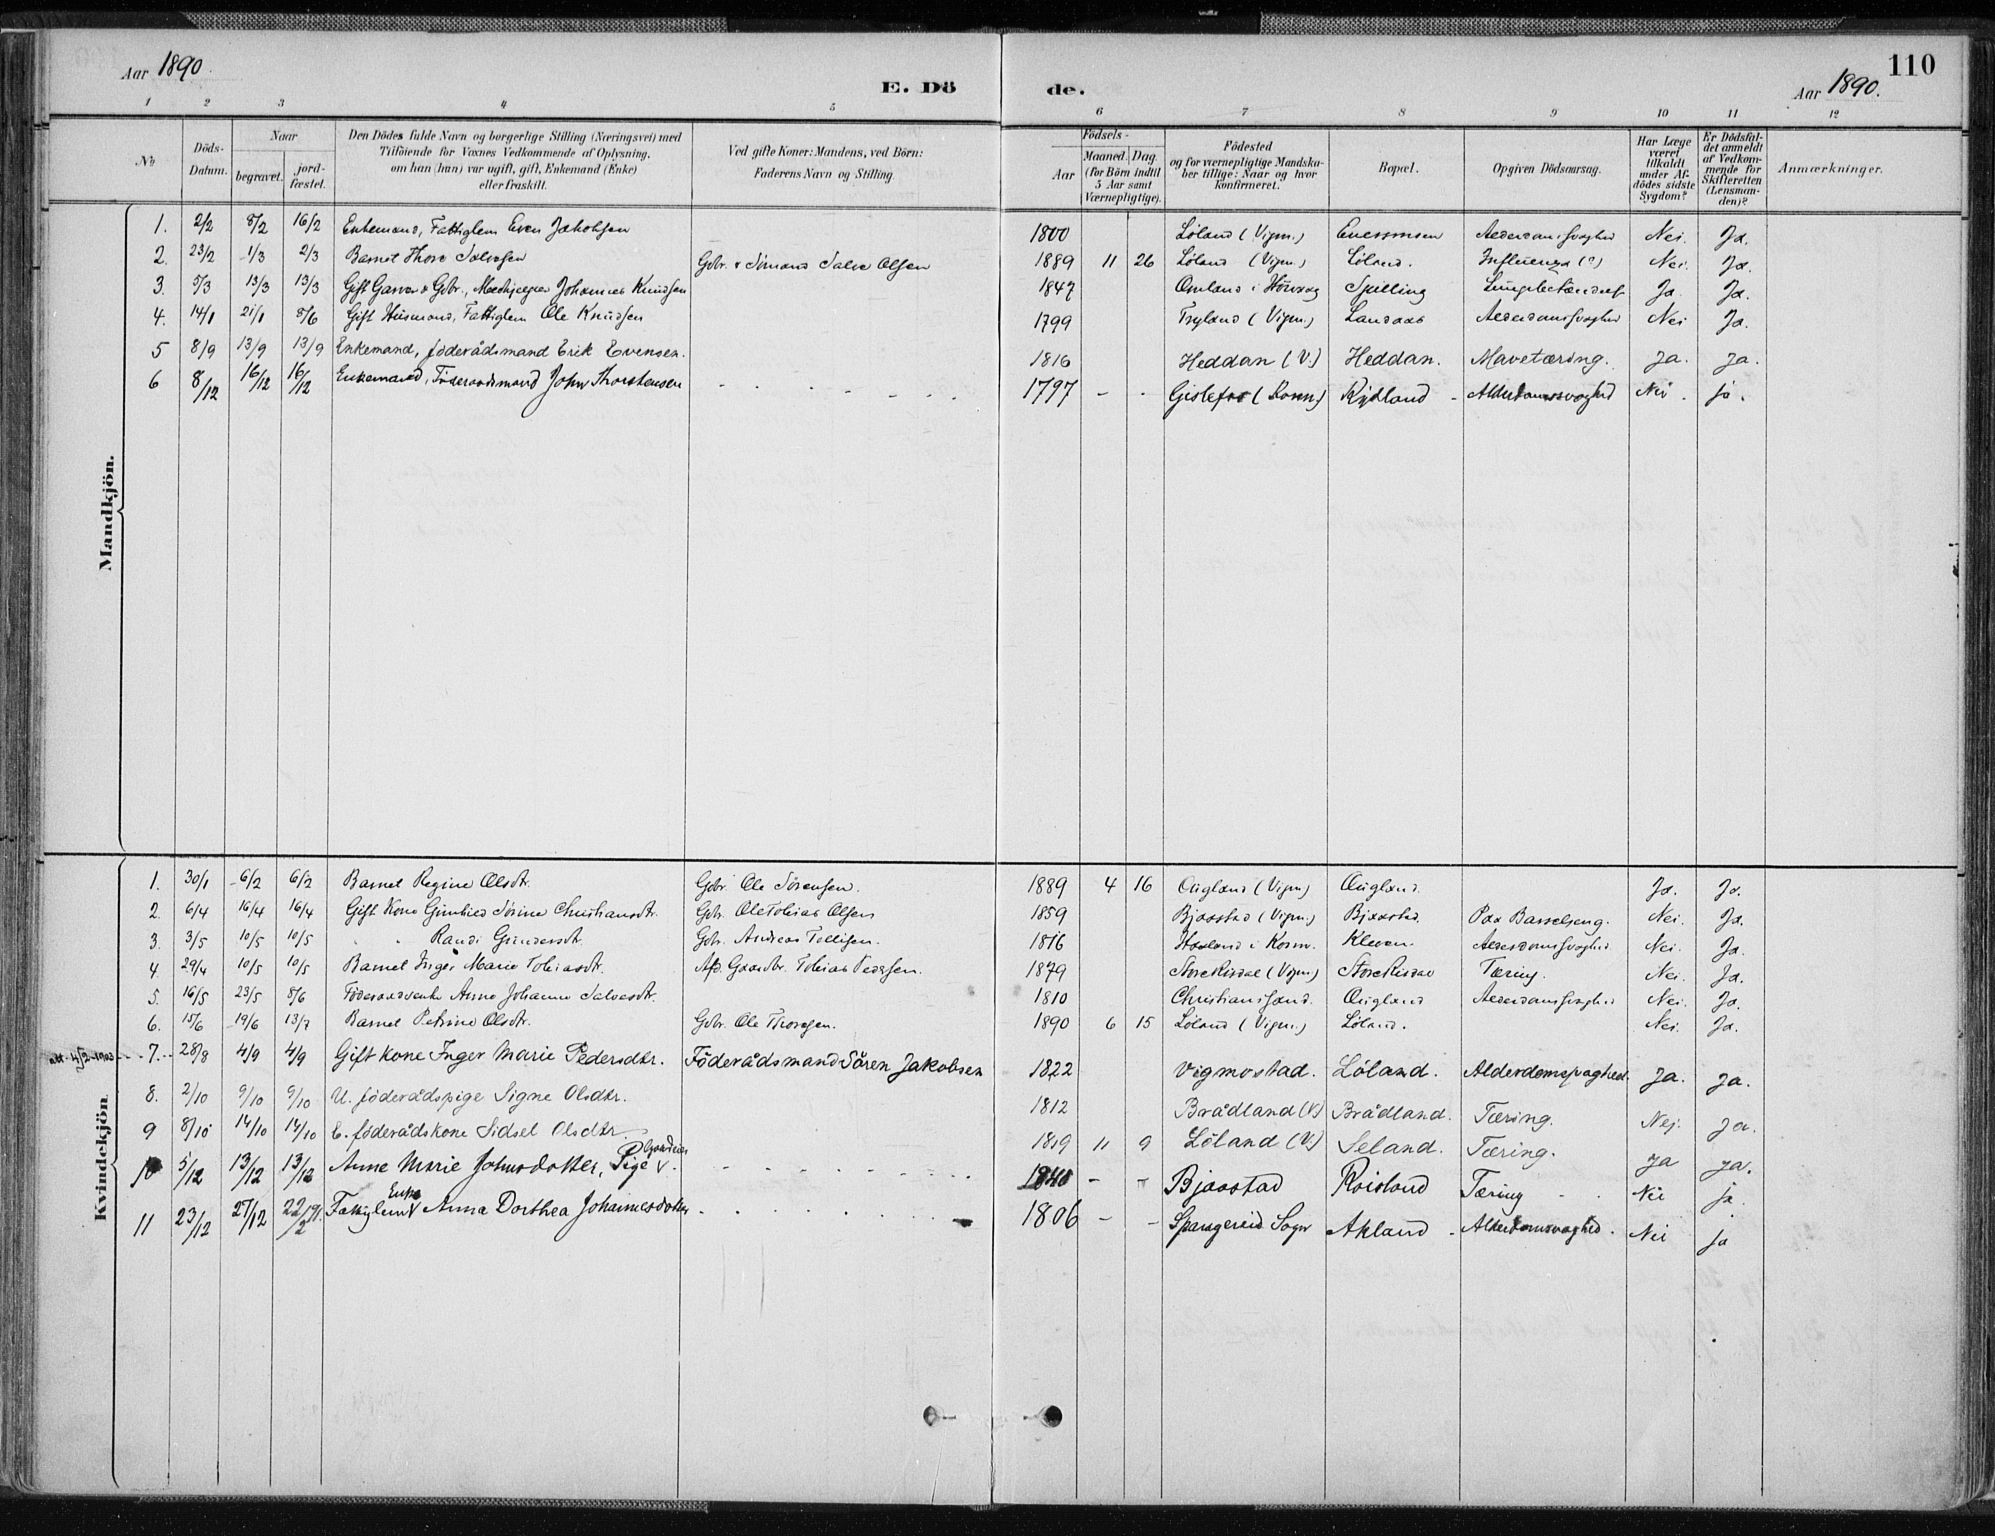 Aar 1890. E. Dö de. Aar 1890. 110
1 2 3 4 5 6 7 8 9 10 11 12
No Döds-Datum. Naar begravet. jord-fæstet. Den Dödes fulde Navn og borgerlige Stilling (Næringsvei) med Tilföiende for Voxnes Vedkommende af Oplysning, om han (hun) var ugift, gift, Enkemand (Enke) eller fraskilt. Ved gifte Koner: Mandens, ved Börn: Faderens Navn og Stilling. Födsels- Aar Maaned. Dag. (for Börn indtil 5 Aar samt Værnepligtige). Födested og for værnepligtige Mandskaber tillige: Naar og hvor konfirmeret. Bopæl. Opgiven Dödsaarsag. Har Læge været tilkaldt under Afdödes sidste Sygdom? Er Dödsfaldet anmeldt af Vedkommende for Skifteretten (Lensmanden)? Anmærkninger.
Mandkjön.
1. 2/2 8/2 16/2 Enkemand, Fattiglem Even Jakobsen 1800 Löland (Vigm.) Alderdomssvaghed Nei. Ja.
2. 23/2 1/3 2/3 Barnet Thore Salvesen Gbr. Salve Olsen 1889 11 26 Löland (Vigm.) Löland. Influenza (?) Nei. Ja.
3. 5/3 13/3 13/3 Gift Garver & Gbr., Johannes Knudsen 1847 Omland i Spilling Ja. Ja.
4. 14/1 21/1 8/6 Gift Husmand, Fattiglem Ole Knudsen 1799 Tryland (Vigm.) Landaas Alderdomssvaghed Nei Ja.
5 8/9 13/9 13/9 Enkemand, föderådsmand Erik Evensen. 1816 Heddan (V.) Heddan. Mavetæring. Ja. Ja.
6 8/12 16/12 16/12 Enkemand, Föderaadsmand John Thorstensen 1797 - - Gislefos (Konm.) Rydland - Alderdomssvaghed Nei. ja.
Kvindekjön
1. 30/1 6/2 6/2 Barnet Regine Olsdtr. Gbr. Ole Sörensen. 1889 4 16 Augland (Vigm) Augland Ja. Ja.
2. 6/4 16/4 16/4 Gift Kone Gunhild Sörine Christiansdtr. Gbr. Ole Tobias Olsen 1859 Bjaastad (Vigm.) Bjaastad Paa Barselseng. Nei. Ja.
3. 3/5 10/5 10/5 " " Randi Gundersdtr. Gbr. Andreas Tellefsen. 1816 i Konm. Kleven. Alderdomssvaghed Nei. Ja.
4. 29/4 10/5 10/5 Barnet Inger Marie Tobiasdtr. Afd. Gaardbr. Tobias Pedersen. 1879 Store Risdal (Vigm.) Store Risdal Tæring. Nei. Ja.
5. 16/5 23/5 8/6 Föderaadsenke Anne Johanne Salvesdtr. 1810 Christianssand. Augland Alderdomssvaghed Nei. Ja.
6. 15/6 19/6 13/7 Barnet Petrine Olsdtr. Gbr. Ole Thoresen. 1890 6 15 Löland (Vigm.) Löland. Nei. Ja.
att. 4/2-1903 7. 28/8 4/9 4/9 Gift kone Inger Marie Pedersdtr. Föderådsmand Sören Jakobsen 1822 Vigmostad. Löland. Alderdomssvaghed. Ja. Ja.
8. 2/10 9/10 9/10 U. föderådspige Signe Olsdtr. 1812 Brådland (V.) Brådland. Tæring. Nej. Ja.
9 8/10 14/10 14/10 E. föderådskone Sidsel Olsdtr. 1819 11 9 Löland (V.) Seland. Tæring. Ja Ja.
10 5/12 13/12 13/12 Anne Marie Johnsdatter, Pige. 1840 - - Bjaastad Roisland Tæring - Nei ja
11 23/12 27/12 22/2 91. Fattiglem Enke Anna Dorthea Johannesdatter 1806 - - Spangereid Sogn Akland - Alderdomssvaghed. Nei ja